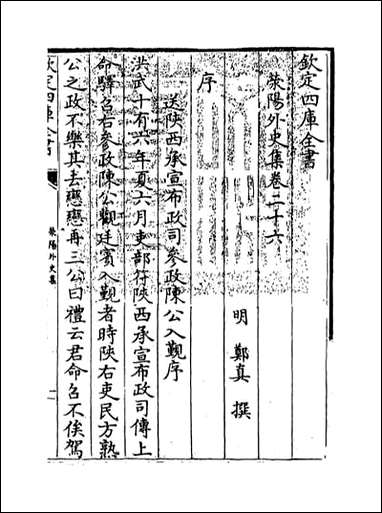 欽定四庫全書
滎陽外史集卷二十六
明 鄭真 撰
序
送陝西承宣布政司參政陳公入覲序
洪武十有六年夏六月吏部符陝西承宣布政司傳上
命驛召右參政陳公觀廷賓入覲者時陝右吏民方熟
公之政不樂其去戀戀再三公曰禮云君命召不俟駕
欽定四庫全書
滎陽外史集